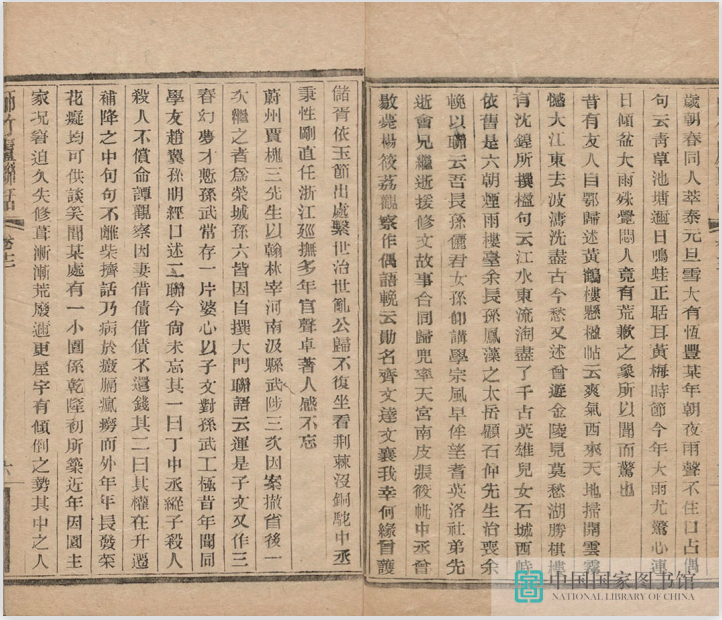 歲朝春同人萃泰元旦雪大有恆豐某年朝夜雨聲不住口占偶
句云青草池塘週日鳴蛙正聒耳黃梅時節今年大雨尤驚心連
日傾盆大雨殊覺悶人竟有荒歉之象所以聞而驚也
昔有友人自鄂歸述黃鶴樓懸楹帖云爽氣西來天地掃開雲霧
憾大江東去波濤洗盡古今愁又述曾遊金陵見莫愁湖勝棋樓
有沈鏜所撰楹句云江水東流淘盡了千古英雄兒女石城西峙
依舊是六朝煙雨樓臺余長孫鳳藻之太岳顧石仰先生治喪余
輓以聯云吾長孫儷君女孫仰講學宗風早侔望耆英洛社弟先
逝會兄繼逝援修文故事合同歸兜率天宮南皮張筱帆中丞曾
散蕘楊筱荔觀察作偶語輓云勛名齊文達文襄我幸何緣曾護
儲胥依玉節出處繫世治世亂公歸不復坐看荆棘沒銅駝中丞
秉性剛直任浙江巡撫多年官聲卓著人感不忘
蔚州賈槐三先生以翰林宰河南汲縣武陟三次因案撤省後一
次繼之者爲榮城孫六皆因自撰大門聯語云運是子文又作三
春幻夢才慙孫武常存一片婆心以子文對孫武工極昔年聞同
學友趙翼孫明經口述二聯今尙未忘其一曰丁中丞縱子殺人
殺人不償命譚觀察因妻借債借債不還錢其二曰其權在升遷
補降之中句句不離柴擠話乃病於癥膈瘋癆而外年年長發菜
花癡均可供談笑聞某處有一小園係乾隆初所築近年因園主
家況窘迫久失修葺漸漸荒廢迴更屋宇有傾倒之勢其中之人
師竹廬聯話
卷十二
六
中国国家图书馆
NATIONAL LIBRARY OF CHINA